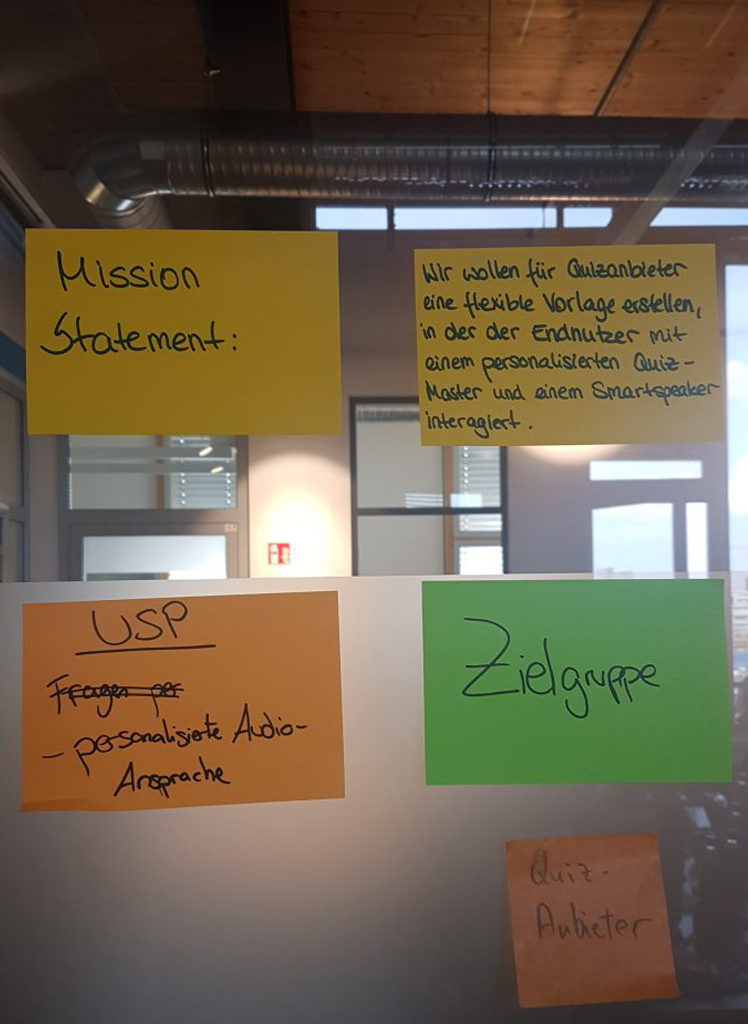 Mission
Statement:
Wir wollen für Quizanbieter
eine flexible Vorlage erstellen,
in der der Endnutzer mit
einem personalisierten Quiz-
Master und einem Smartspeaker
interagiert.
USP
Fragen per
- personalisierte Audio-
Ansprache
Zielgruppe
Quiz-
Anbieter